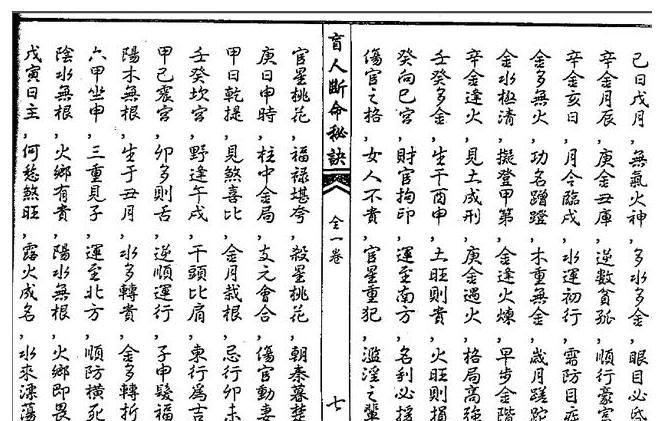 己日戌月，無氣火神，多水多金，眼目必
辛金月辰，庚金丑庫，逆數貧孤，順行豪
辛金亥日，月令臨戌，水運初行，需防目
金多無火，功名蹭蹬，木重無金，歲月蹉跎
金水極清，擬登甲第，金逢火煉，早步金階
辛金逢火，見土成刑，庚金遇火，格局高強
壬癸多金，生于酉申，土旺則貴，火旺則損
癸向巳宮，財官拘印，運至南方，名利必
傷官之格，女人不貴，官星重犯，濫淫之輩
盲人断命秘訣
全一卷
七
官星桃花，福祿堪夸，殺星桃花，朝秦暮楚
庚日申時，柱中金局，支元會合，傷官動妻
甲日乾提，見煞喜比，金月栽根，忌行卯未
壬癸坎宮，野逢午戌，干頭比肩，東行為吉
甲己震宮，卯多則舌，逆順運行，子申發福
陽木無根，生于丑月，水多轉貴，金多轉折
六甲坐申，三重見子，運至北方，順防橫死
陰水無根，火鄉有貴，陽水無根，火鄉即畏
戊寅日主，何愁煞旺，露火成名，水來漂蕩